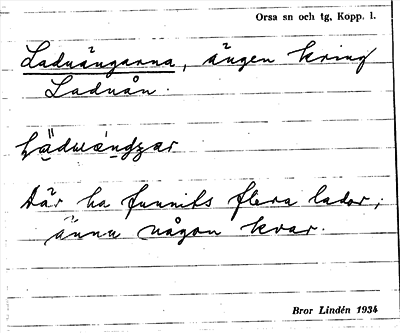 Orsa sn och tg, Kopp. l.
Laduängarna, ängen kring
Laduån.
Där ha funnits flera lador,
ännu någon kvar.
Bror Lindén 1934